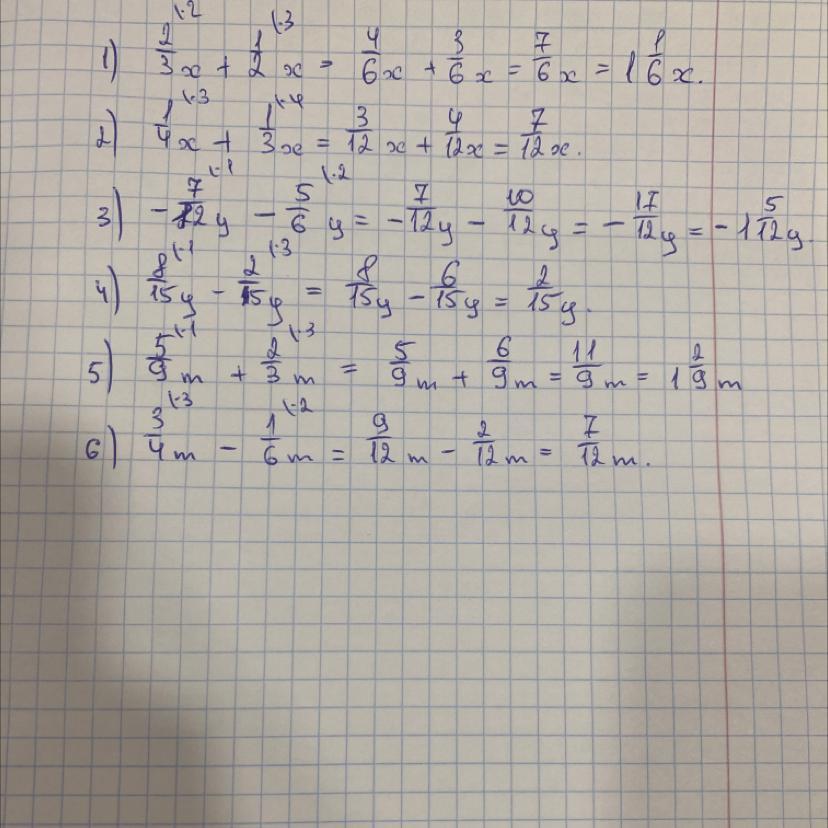 1) 2/3 x + 1/2 x = 4/6 x + 3/6 x = 7/6 x = 1 1/6 x.
2) 1/4 x + 1/3 x = 3/12 x + 4/12 x = 7/12 x.
3) - 7/12 y - 5/6 y = - 7/12 y - 10/12 y = - 17/12 y = - 1 5/12 y.
4) 8/15 y - 2/15 y = 8/15 y - 6/15 y = 2/15 y.
5) 5/9 m + 2/3 m = 5/9 m + 6/9 m = 11/9 m = 1 2/9 m
6) 3/4 m - 1/6 m = 9/12 m - 2/12 m = 7/12 m.